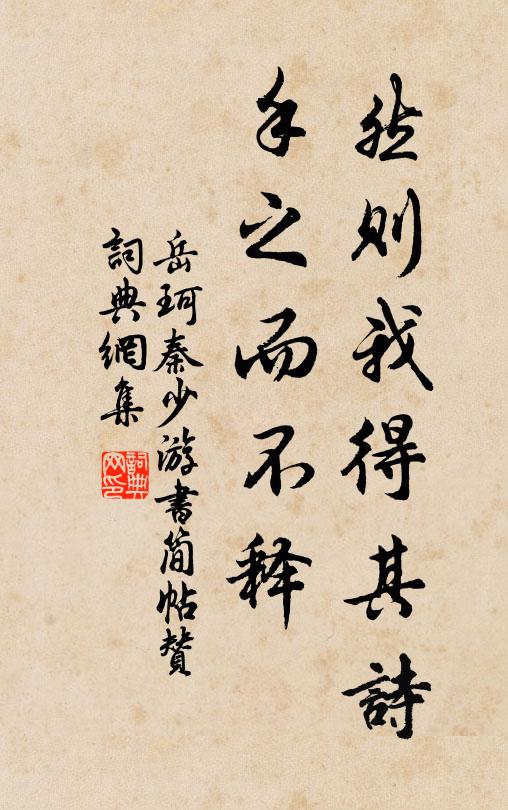 然则我得其詩
手之而不释
岳珂秦少游書简帖赞
詞典網集
詞典網印